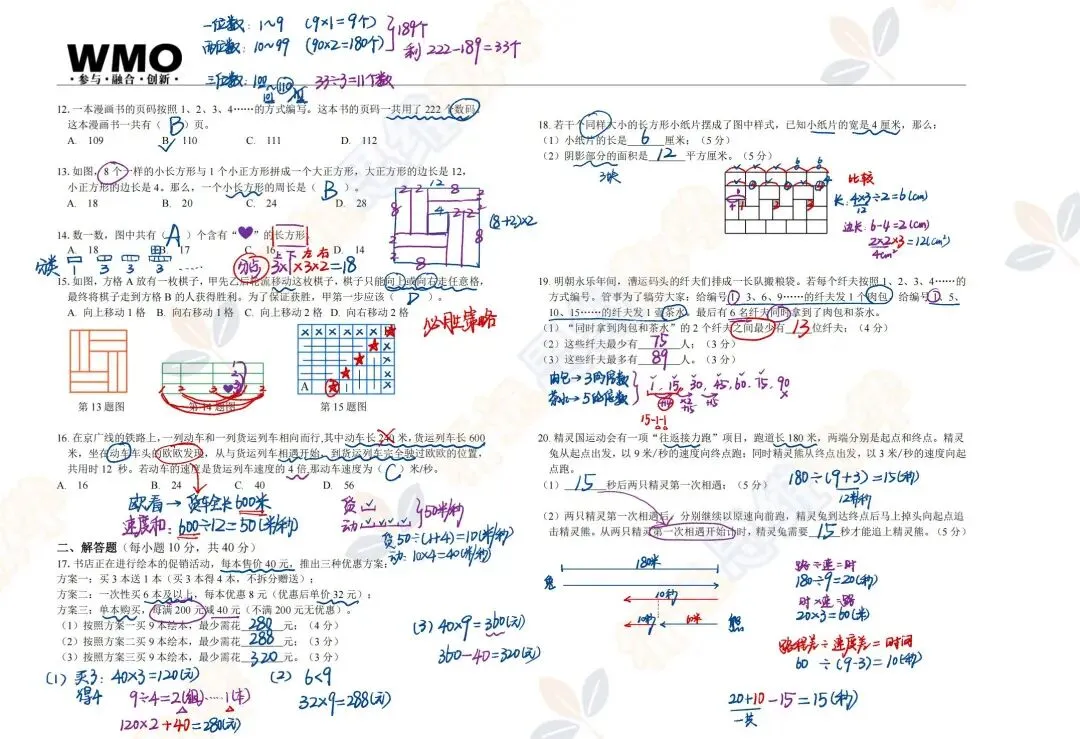 一位数：1~9 （9×1=9个）
两位数：10~99 （90×2=180个） 189个
剩 222-189=33个
三位数：100~110 33÷3=11个数
101
WMO
·参与·融合·创新·
12. 一本漫画书的页码按照 1、2、3、4……的方式编写。这本书的页码一共用了 222 个数码，
这本漫画书一共有（ B ）页。
A. 109 B. 110 C. 111 D. 112
13. 如图，8 个一样的小长方形与 1 个小正方形拼成一个大正方形，大正方形的边长是 12，
小正方形的边长是 4。那么，一个小长方形的周长是（ B ）。
A. 18 B. 20 C. 24 D. 28
12
2 2 8
8 4 2 2
2 8
8 2
(8+2)×2
14. 数一数，图中共有（ A ）个含有“♥”的长方形
A. 18 B. 17 C. 16 D. 14
分类 1 3 3 3 ……
上下 左右
3×1×3×2=18
15. 如图，方格 A 放有一枚棋子，甲先乙后轮流移动这枚棋子，棋子只能向上或向右走任意格，
最终将棋子走到方格 B 的人获得胜利。为了保证获胜，甲第一步应该（ D ）。
A. 向上移动 1 格 B. 向右移动 1 格 C. 向上移动 2 格 D. 向右移动 2 格
必胜策略
A
第 13 题图 第 14 题图 第 15 题图
16. 在京广线的铁路上，一列动车和一列货运列车相向而行,其中动车长 240 米,货运列车长 600
米，坐在动车车头的欧欧发现，从与货运列车相遇开始，到货运列车完全驶过欧欧的位置，
共用时 12 秒。若动车的速度是货运列车速度的 4 倍,那动车速度为（ C ）米/秒。
A. 16 B. 24 C. 40 D. 56
欧看→货车全长600米
速度和：600÷12=50(米/秒)
货
动
50米/秒
货 50÷(1+4)=10(米/秒)
动：10×4=40(米/秒)
二、解答题（每小题 10 分，共 40 分）
17. 书店正在进行绘本的促销活动，每本售价 40 元，推出三种优惠方案：
方案一：买 3 本送 1 本（买 3 本得 4 本，不拆分赠送）；
方案二：一次性买 6 本及以上，每本优惠 8 元（优惠后单价 32 元）；
方案三：单本购买，每满 200 元减 40 元（不满 200 元无优惠）。
（1）按照方案一买 9 本绘本，最少需花 280 元；（4 分）
（2）按照方案二买 9 本绘本，最少需花 288 元；（3 分）
（3）按照方案三买 9 本绘本，最少需花 320 元。（3 分）
（3）40×9=360(元)
360-40=320(元)
（1）买3：40×3=120(元)
得4 9÷4=2(组)……1(本)
120×2+40=280(元)
（2）6<9
32×9=288(元)
18. 若干个同样大小的长方形小纸片摆成了图中样式，已知小纸片的宽是 4 厘米，那么：
（1）小纸片的长是 6 厘米；（5 分）
（2）阴影部分的面积是 12 平方厘米。（5 分）
3块
比较
长：4×3÷2=6(cm)
12
边长：6-4=2(cm)
2×2×3=12(cm²)
4cm²
19. 明朝永乐年间，漕运码头的纤夫们排成一长队搬粮袋。若每个纤夫按照 1、2、3、4……的
方式编号。管事为了犒劳大家：给编号 1、3、6、9……的纤夫发 1 个肉包，给编号 1、5、
10、15……的纤夫发 1 壶茶水。最后有 6 名纤夫同时拿到了肉包和茶水。
（1）“同时拿到肉包和茶水”的 2 个纤夫之间最少有 13 位纤夫；（4 分）
（2）这些纤夫最少有 75 人；（3 分）
（3）这些纤夫最多有 89 人。（3 分）
肉包→3的倍数
茶水→5的倍数
1，15，30，45，60，75，90
+14 ×2 +15 +15
15-1-1
20. 精灵国运动会有一项“往返接力跑”项目，跑道长 180 米，两端分别是起点和终点。精灵
兔从起点出发，以 9 米/秒的速度向终点跑；同时精灵熊从终点出发，以 3 米/秒的速度向起
点跑。
（1） 15 秒后两只精灵第一次相遇；（5 分）
180÷(9+3)=15(秒)
12米/秒
（2）两只精灵第一次相遇后，分别继续以原速向前跑，精灵兔到达终点后马上掉头向起点追
击精灵熊。从两只精灵第一次相遇开始计时，精灵兔需要 15 秒才能追上精灵熊。（5 分）
180米
兔
10秒
10秒 60米 熊
路÷速=时
180÷9=20(秒)
时×速=路
20×3=60(米)
路程差÷速度差=时间
60÷(9-3)=10(秒)
20+10-15=15(秒)
一共